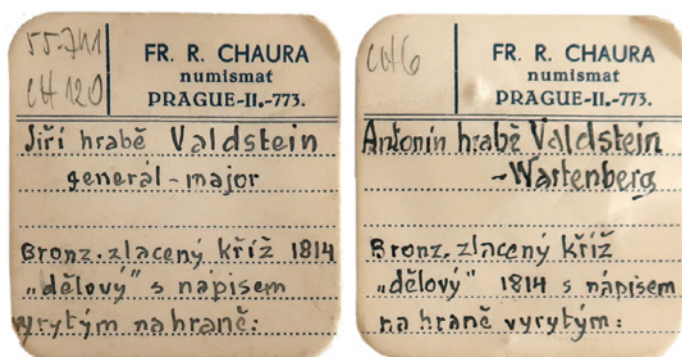 55-711
CH 120
FR. R. CHAURA
numismat
PRAGUE-II.-773.
Jiří hrabě Valdstein
generál-major
Bronz. zlacený kříž 1814
„dělový" s nápisem
vyrytým na hraně:
CH6
FR. R. CHAURA
numismat
PRAGUE-II.-773.
Antonín hrabě Valdstein
-Wartenberg
Bronz. zlacený kříž
„dělový" 1814 s nápisem
na hraně vyrytým: